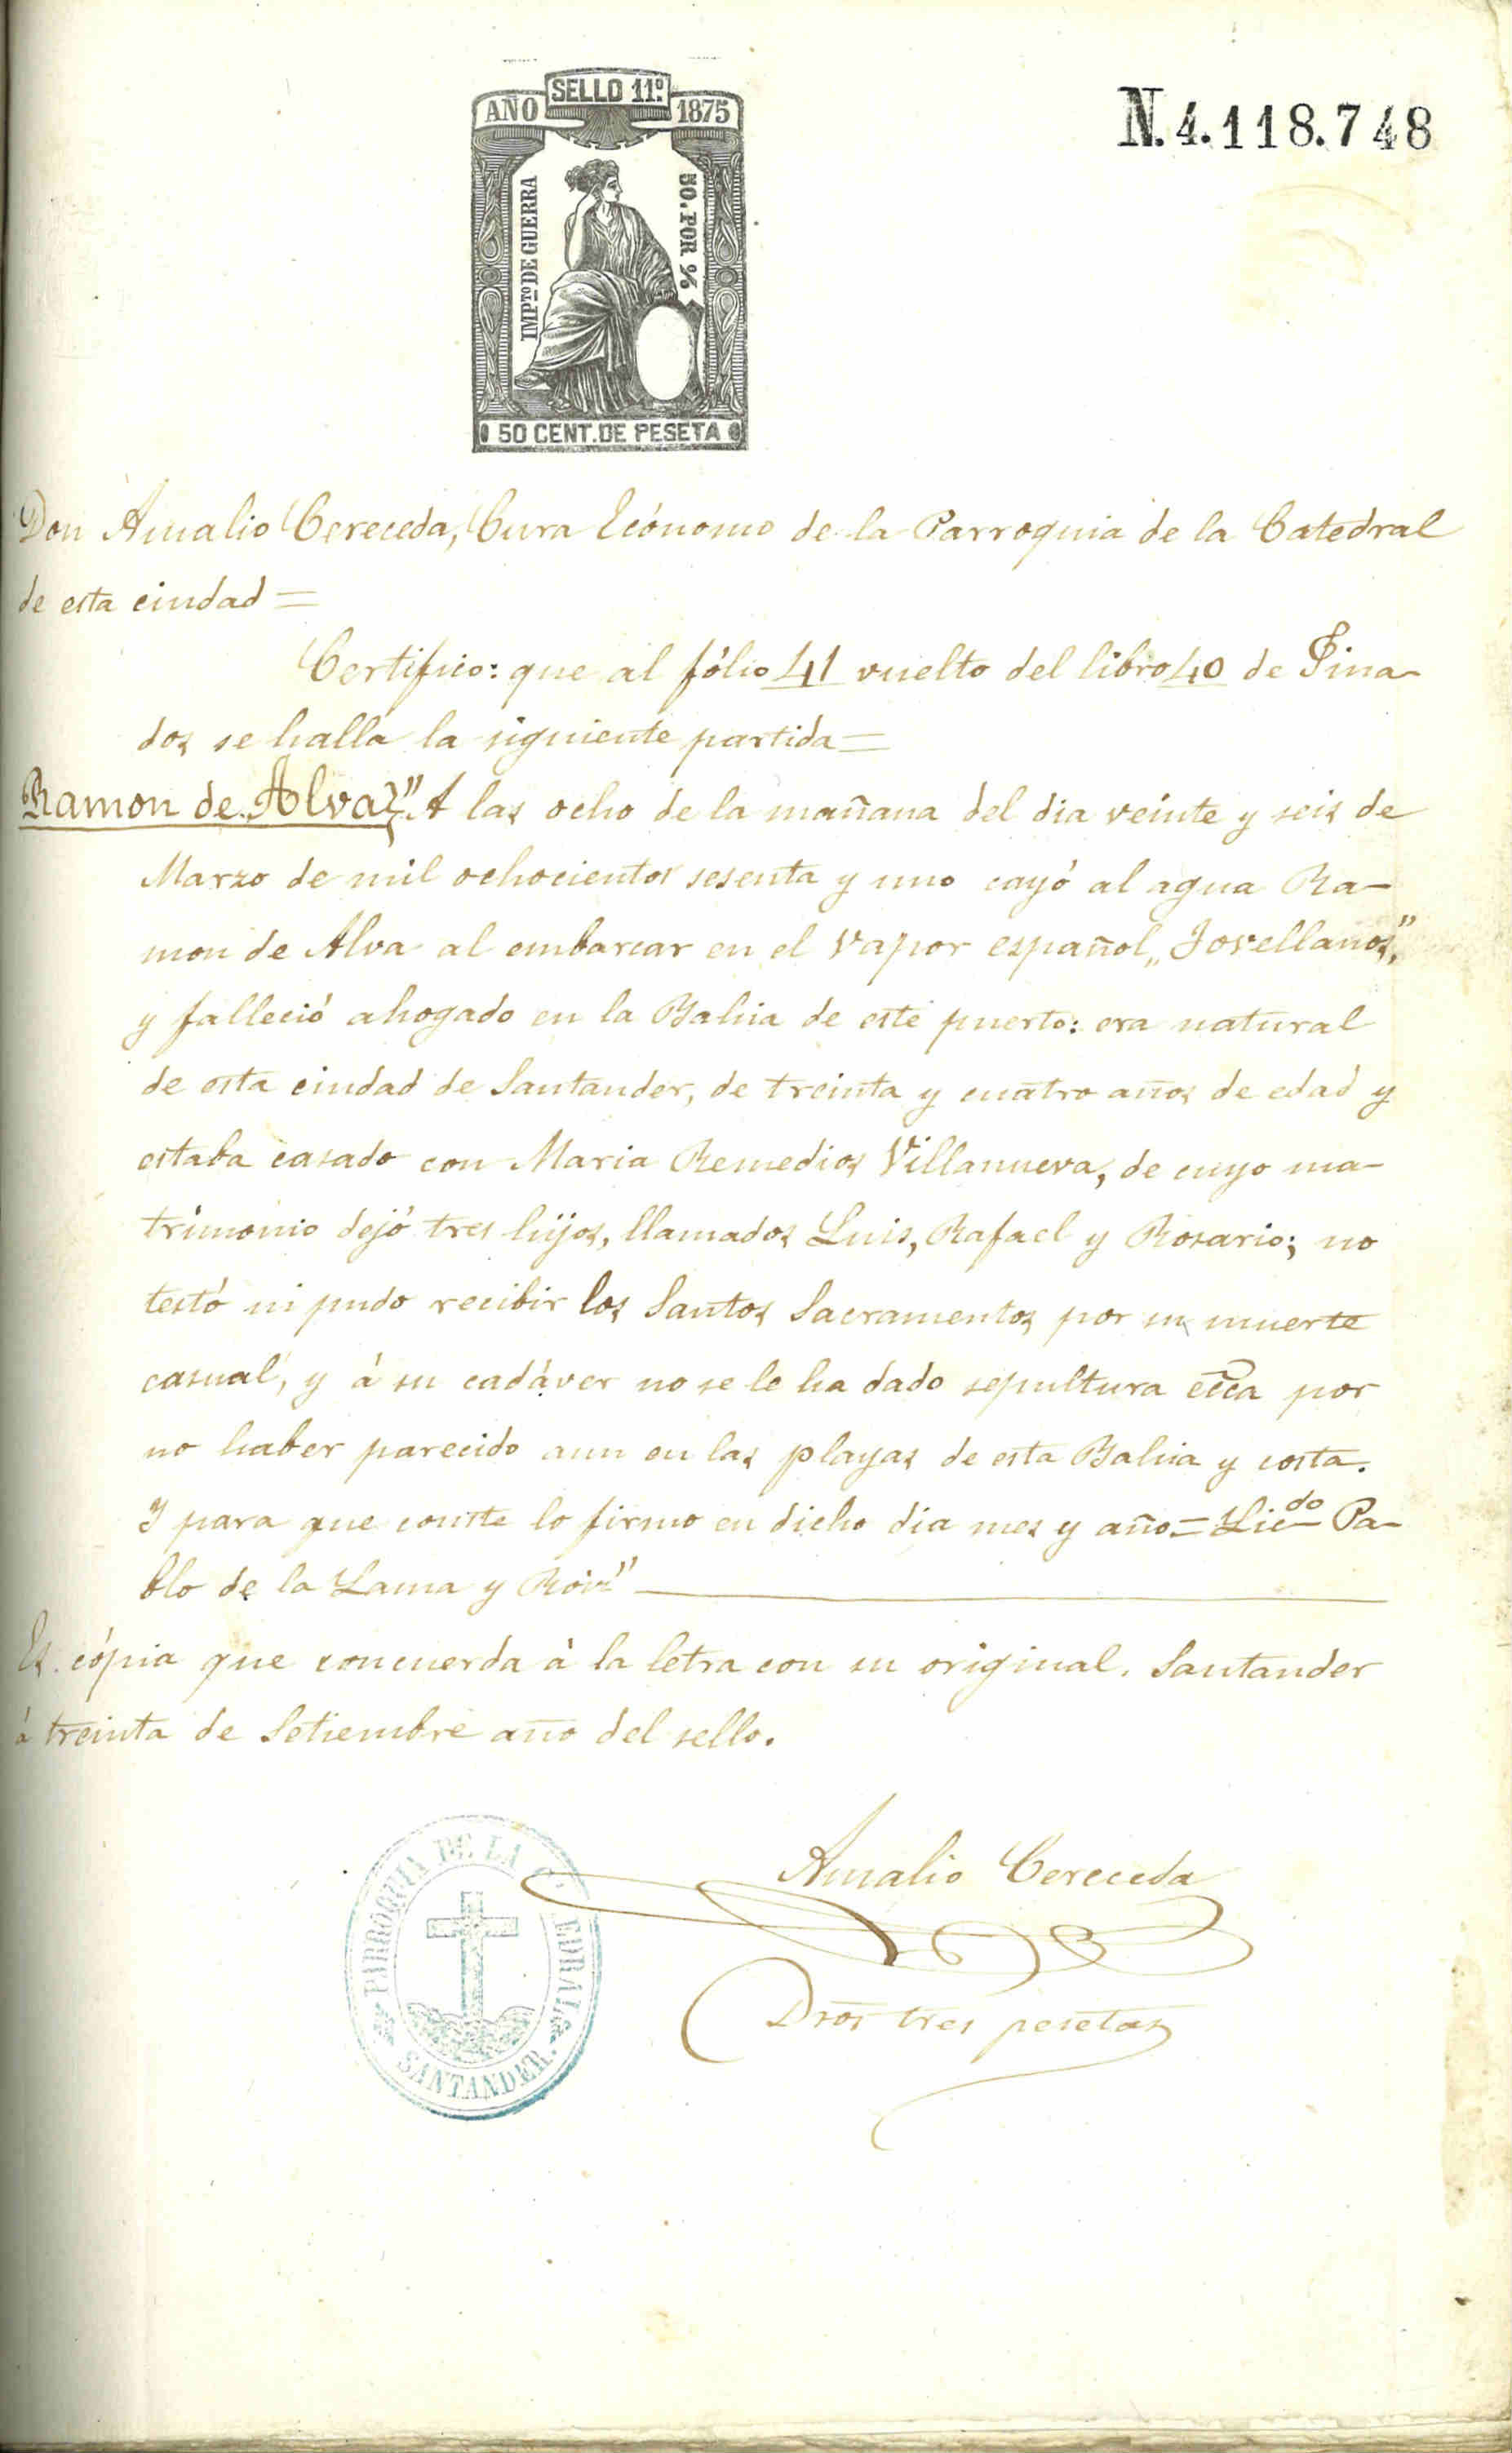 SELLO 11º
AÑO 1875
N. 4.118.748
IMPTO DE GUERRA
50. POR %
50 CENT. DE PESETA
Don Amalio Cereceda, Cura Ecónomo de la Parroquia de la Catedral
de esta ciudad =
Certifico: que al fólio 41 vuelto del libro 40 de Fina-
dos se halla la siguiente partida =
Ramon de Alva} "A las ocho de la mañana del dia veinte y seis de
Marzo de mil ochocientos sesenta y uno cayó al agua Ra-
mon de Alva al embarcar en el vapor español „Jovellanos",
y falleció ahogado en la Bahia de este puerto: era natural
de esta ciudad de Santander, de treinta y cuatro años de edad y
estaba casado con Maria Remedios Villanueva, de cuyo ma-
trimonio dejó tres hijos, llamados Luis, Rafael y Rosario; no
testó ni pudo recibir los Santos Sacramentos por su muerte
casual, y á su cadáver no se le ha dado sepultura ecca por
no haber parecido aun en las playas de esta Bahia y costa.
Y para que conste lo firmo en dicho dia mes y año = Licdo Pa-
blo de la Lama y
Es cópia que concuerda á la letra con su original. Santander
á treinta de Setiembre año del sello.
Amalio Cereceda
Dros tres pesetas
PARROQUIA DE LA CATEDRAL
SANTANDER.